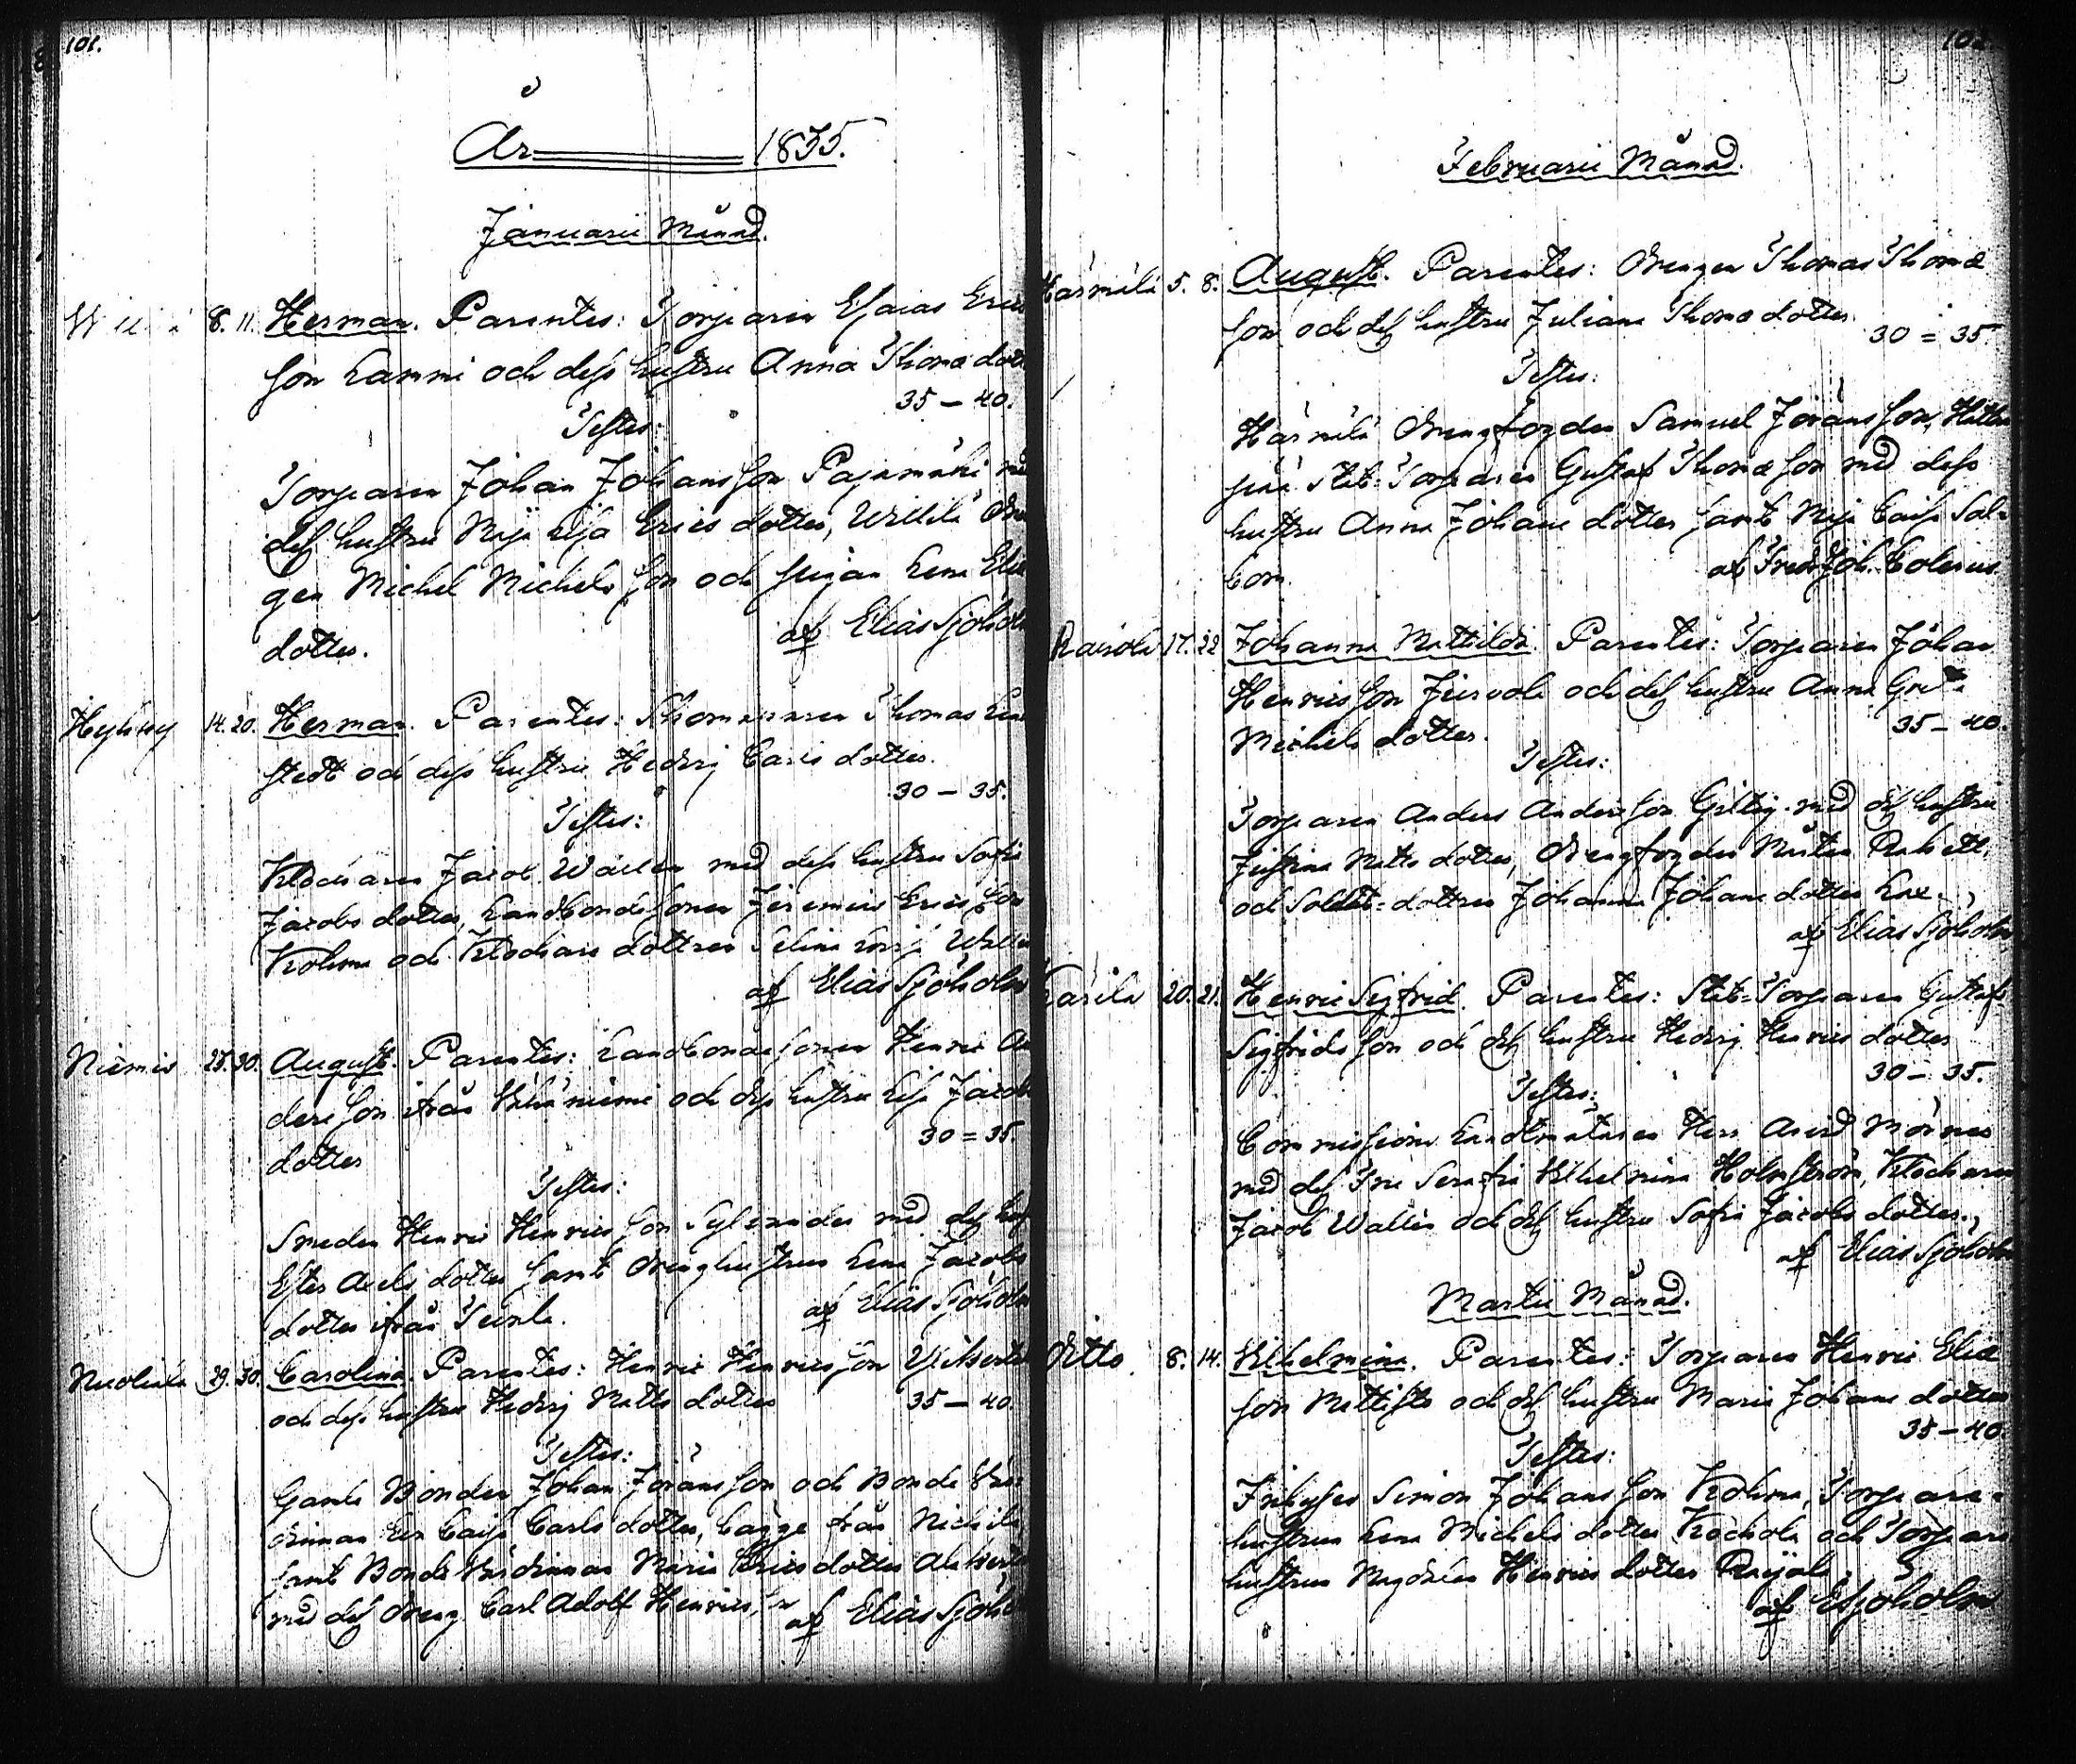 101.
År 1835.
Januarii Månad.
8. 11. Herman. Parentes: Torparen Esaias Erics
son Lammi och dess hustru Anna Thomædott
35 – 40.
Testes:
Torparen Johan Johansson Pajamäki med
dess hustru Maja Lisa Ericsdotter, Willilä Dren
gen Michel Michelsson och pigan Lena Eliæ
dotter.
af Elias Sjöholm
Hyhky 14. 20. Herman. Parentes: Thomas
stedt och dess hustru Hedvig Carlsdotter.
30 – 35.
Testes:
Klockaren Jacob Wallin med dess hustru Sofia
Jacobsdotter, Landbondesonen Jeremias Ericsson
Krohna och Klockaredottren Selina Wallin
af Elias Sjöholm
Niemis 25. 30. August. Parentes: Landbondesonen Henric An
dersson ifrån Vähäniemi och dess hustru Lisa Jacobs
dotter
30 = 35.
Testes:
Smeden Henric Henricsson Sylvander med dess hus
Ester Axelsdotter samt Drenghustrun Lena Jacobs
dotter ifrån
af Elias Sjöholm
29. 30. Carolina. Parentes: Henric Henricsson
och dess hustru Hedvig Mattsdotter
35 – 40.
Testes:
Gamle Bonden Johan Joransson och Bonde Vär
dinnan Caisa Carlsdotter, från
samt Bonde Värdinnan Maria Ericsdotter
med dess Dreng Carl Adolf Henricsson
af Elias Sjöho
102
Februarii Månad.
Härmilä 5. 8. August. Parentes: Drengen Thomas Thomæ
son och dess hustru Juliana Thomædotter.
30 = 35
Testes:
Härmilä Drengfogden Samuel Joransson,
Stat-Torparen Gustaf Thomæson med dess
hustru Anna Johansdotter samt Maja Caisa Sal-
bom.
af Fredr Joh. Colerus
Raisola 17. 22. Johanna Mathilda. Parentes: Torparen Johan
Henricsson Juvola och dess hustru Anna Greta
Michelsdotter.
35 – 40.
Testes:
Torparen Anders Andersson med dess hustru
Justina Mattsdotter, Drengfogden Mårten
och Soldat-dottren Johanna Johansdotter
af Elias Sjöholm
20. 21. Henric Sigfrid. Parentes: Stat-Torparen Gustaf
Sigfridsson och dess hustru Hedvig Henricsdotter
30 – 35.
Testes:
Commissions Landtmätaren Herr Arvid Mörnes
med dess Fru Serafia Vilhelmina Holmström, Klockaren
Jacob Wallin och dess hustru Sofia Jacobsdotter.
af Elias Sjöholm
Martii Månad.
Ditto 8. 14. Vilhelmina. Parentes: Torparen Henric Eliæ
son Mattisto och dess hustru Maria Johansdotter
35 – 40
Testes:
Inhyses Simon Johansson Krohna, Torpare-
hustrun Lena Michelsdotter och Torpare
hustrun Magdalena Henricsdotter
af ESjoholm